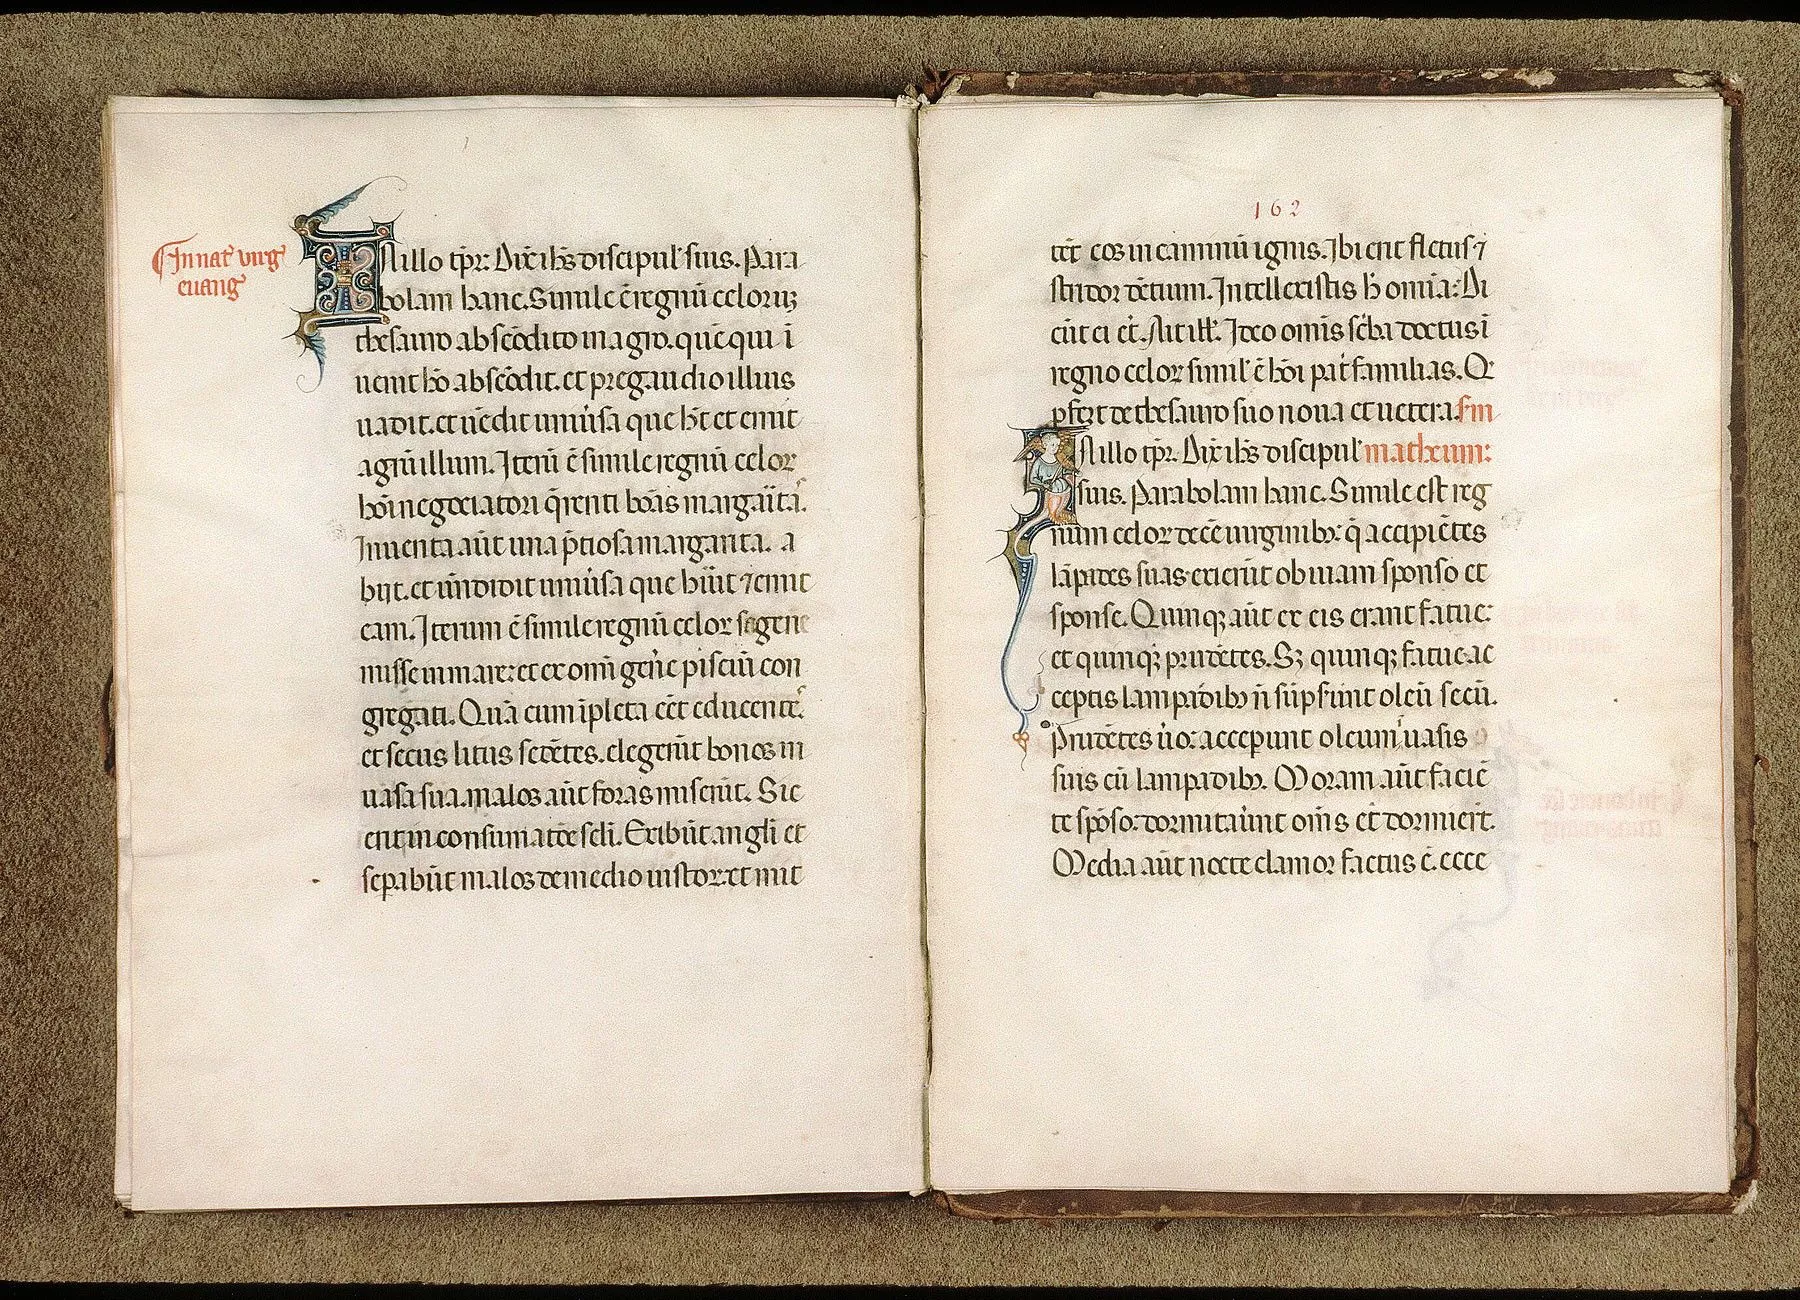 In nat̄ virḡ
euanḡ
In illo tp̄r. Dix̄ ih̄s discipul' suis. Para
bolam hanc. Simile ē regnū celoruꝫ
thesauro abscōdito in agro. quē qui ī
uenit hō abscōdit. et pre gaudio illius
uadit. et uēdit uniūsa que h̄t et emit
agrū illum. Iterū ē simile regnū celor
hōi negociatori q̄renti bōas margäitas.
Inuenta aūt una p̄ciosa margarita. a
bijt. et uēndidit uniūsa que hūit ⁊ emit
eam. Iterum ē simile regnū celor sagene
misse in mare: et ex omī gēne pisciū con
gregati. Quā cum īpleta eēt educentes.
et secus litus sedētes. elegerūt bonos in
uasa sua. malos aūt foras miserūt. Sic
erit in consumatōe sc̄li. Exibūt angli et
sep̄abūt malos de medio iustor. et mit
162
tēt eos in caminū ignis. Ibi erit fletus ⁊
stridor dētium. Intellexistis h̄ omīa: Di
cūt ei ēt. Ait ill'. Ideo omīs sc̄ba doctus ī
regno celor simil' ē hōi pat̄familias. Q
pfert de thesauro suo noua et uetera. Sm̄
In illo tp̄r. Dix̄ ih̄s discipul' matheum:
suis. Parabolam hanc. Simile est reg
num celor decē uirginibꝫ: q̄ accipiētes
lāpades suas exierūt obuiam sponso et
sponse. Quinqꝫ aūt ex eis erant fatue:
et quinqꝫ prudētes. Sꝫ quinqꝫ fatue ac
ceptis lampadibꝫ n̄ sūpsūnt oleū secū.
Prudētes ūo: accepunt oleum ī uasis
suis cū lampadibꝫ. Moram aūt faciē
te spōso: dormitaūnt om̄s et dormiert.
Media aūt nocte clamor factus ē. ecce